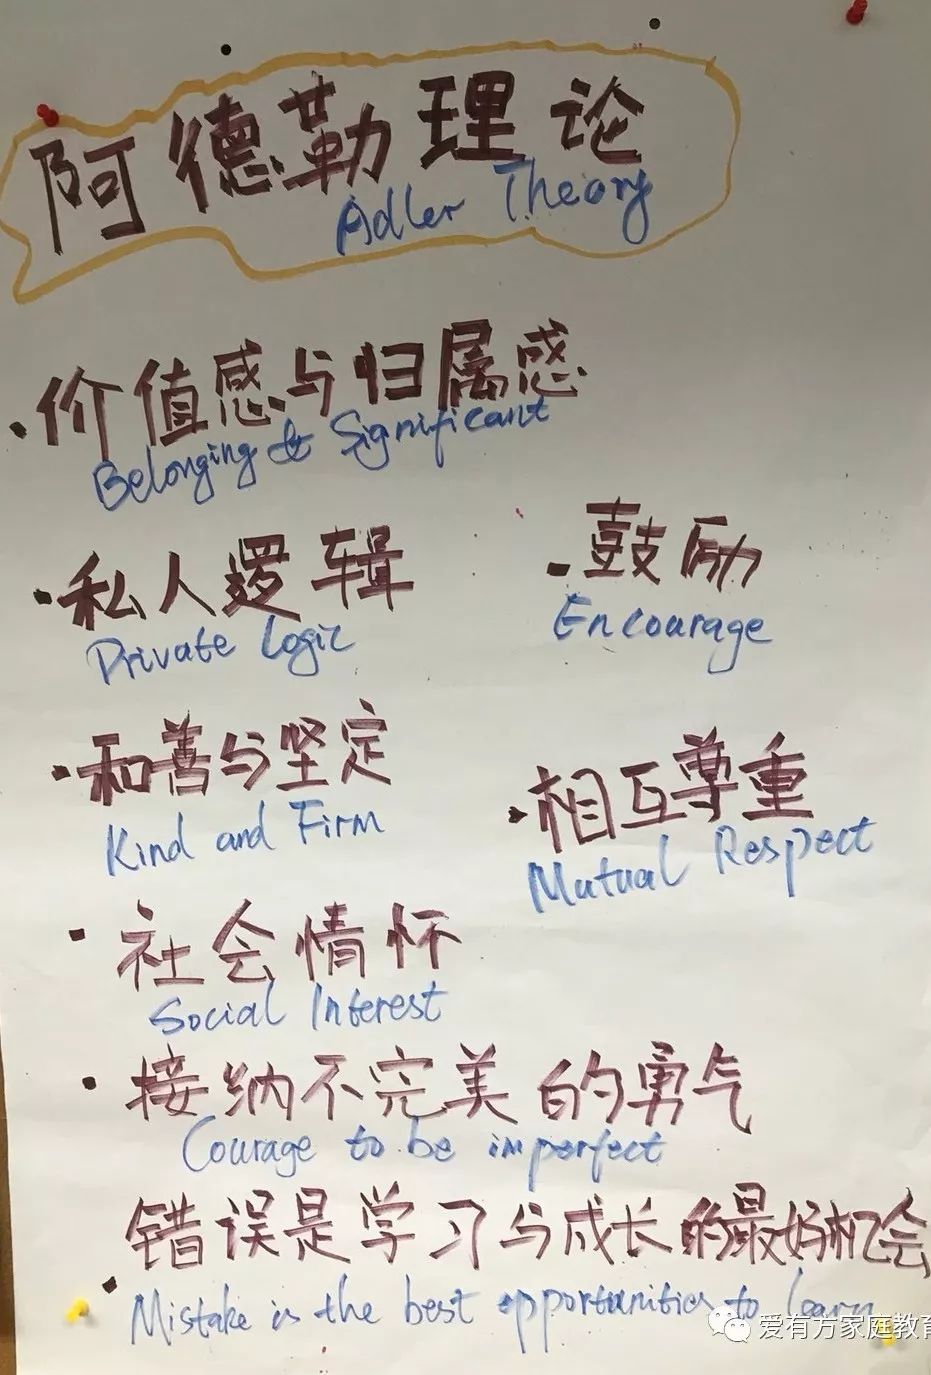 阿德勒理论
Adler Theory
·价值感与归属感
Belonging & Significant
·私人逻辑
Private Logic
·鼓励
Encourage
·和善与坚定
Kind and Firm
·相互尊重
Mutual Respect
·社会情怀
Social Interest
·接纳不完美的勇气
Courage to be imperfect
·错误是学习与成长的最好机会
Mistake is the best opportunities to learn
爱有方家庭教育